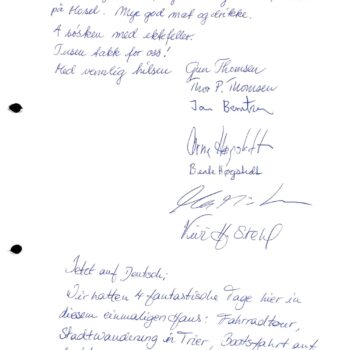 på Mosel. Mye god mat og drikke.
4 søsken med ektefeller.
Tusen takk for oss!
Med vennlig hilsen Gun Thomsen
Thor P. Thomsen
Jan Berntsen
Anne Høgstedt
Beate Høgstedt
Stehl
Jetzt auf Deutsch:
Wir hatten 4 fantastische Tage hier in
diesem einmaligen Haus: Fahrradtour,
Stadtwanderung in Trier, Bootsfahrt auf